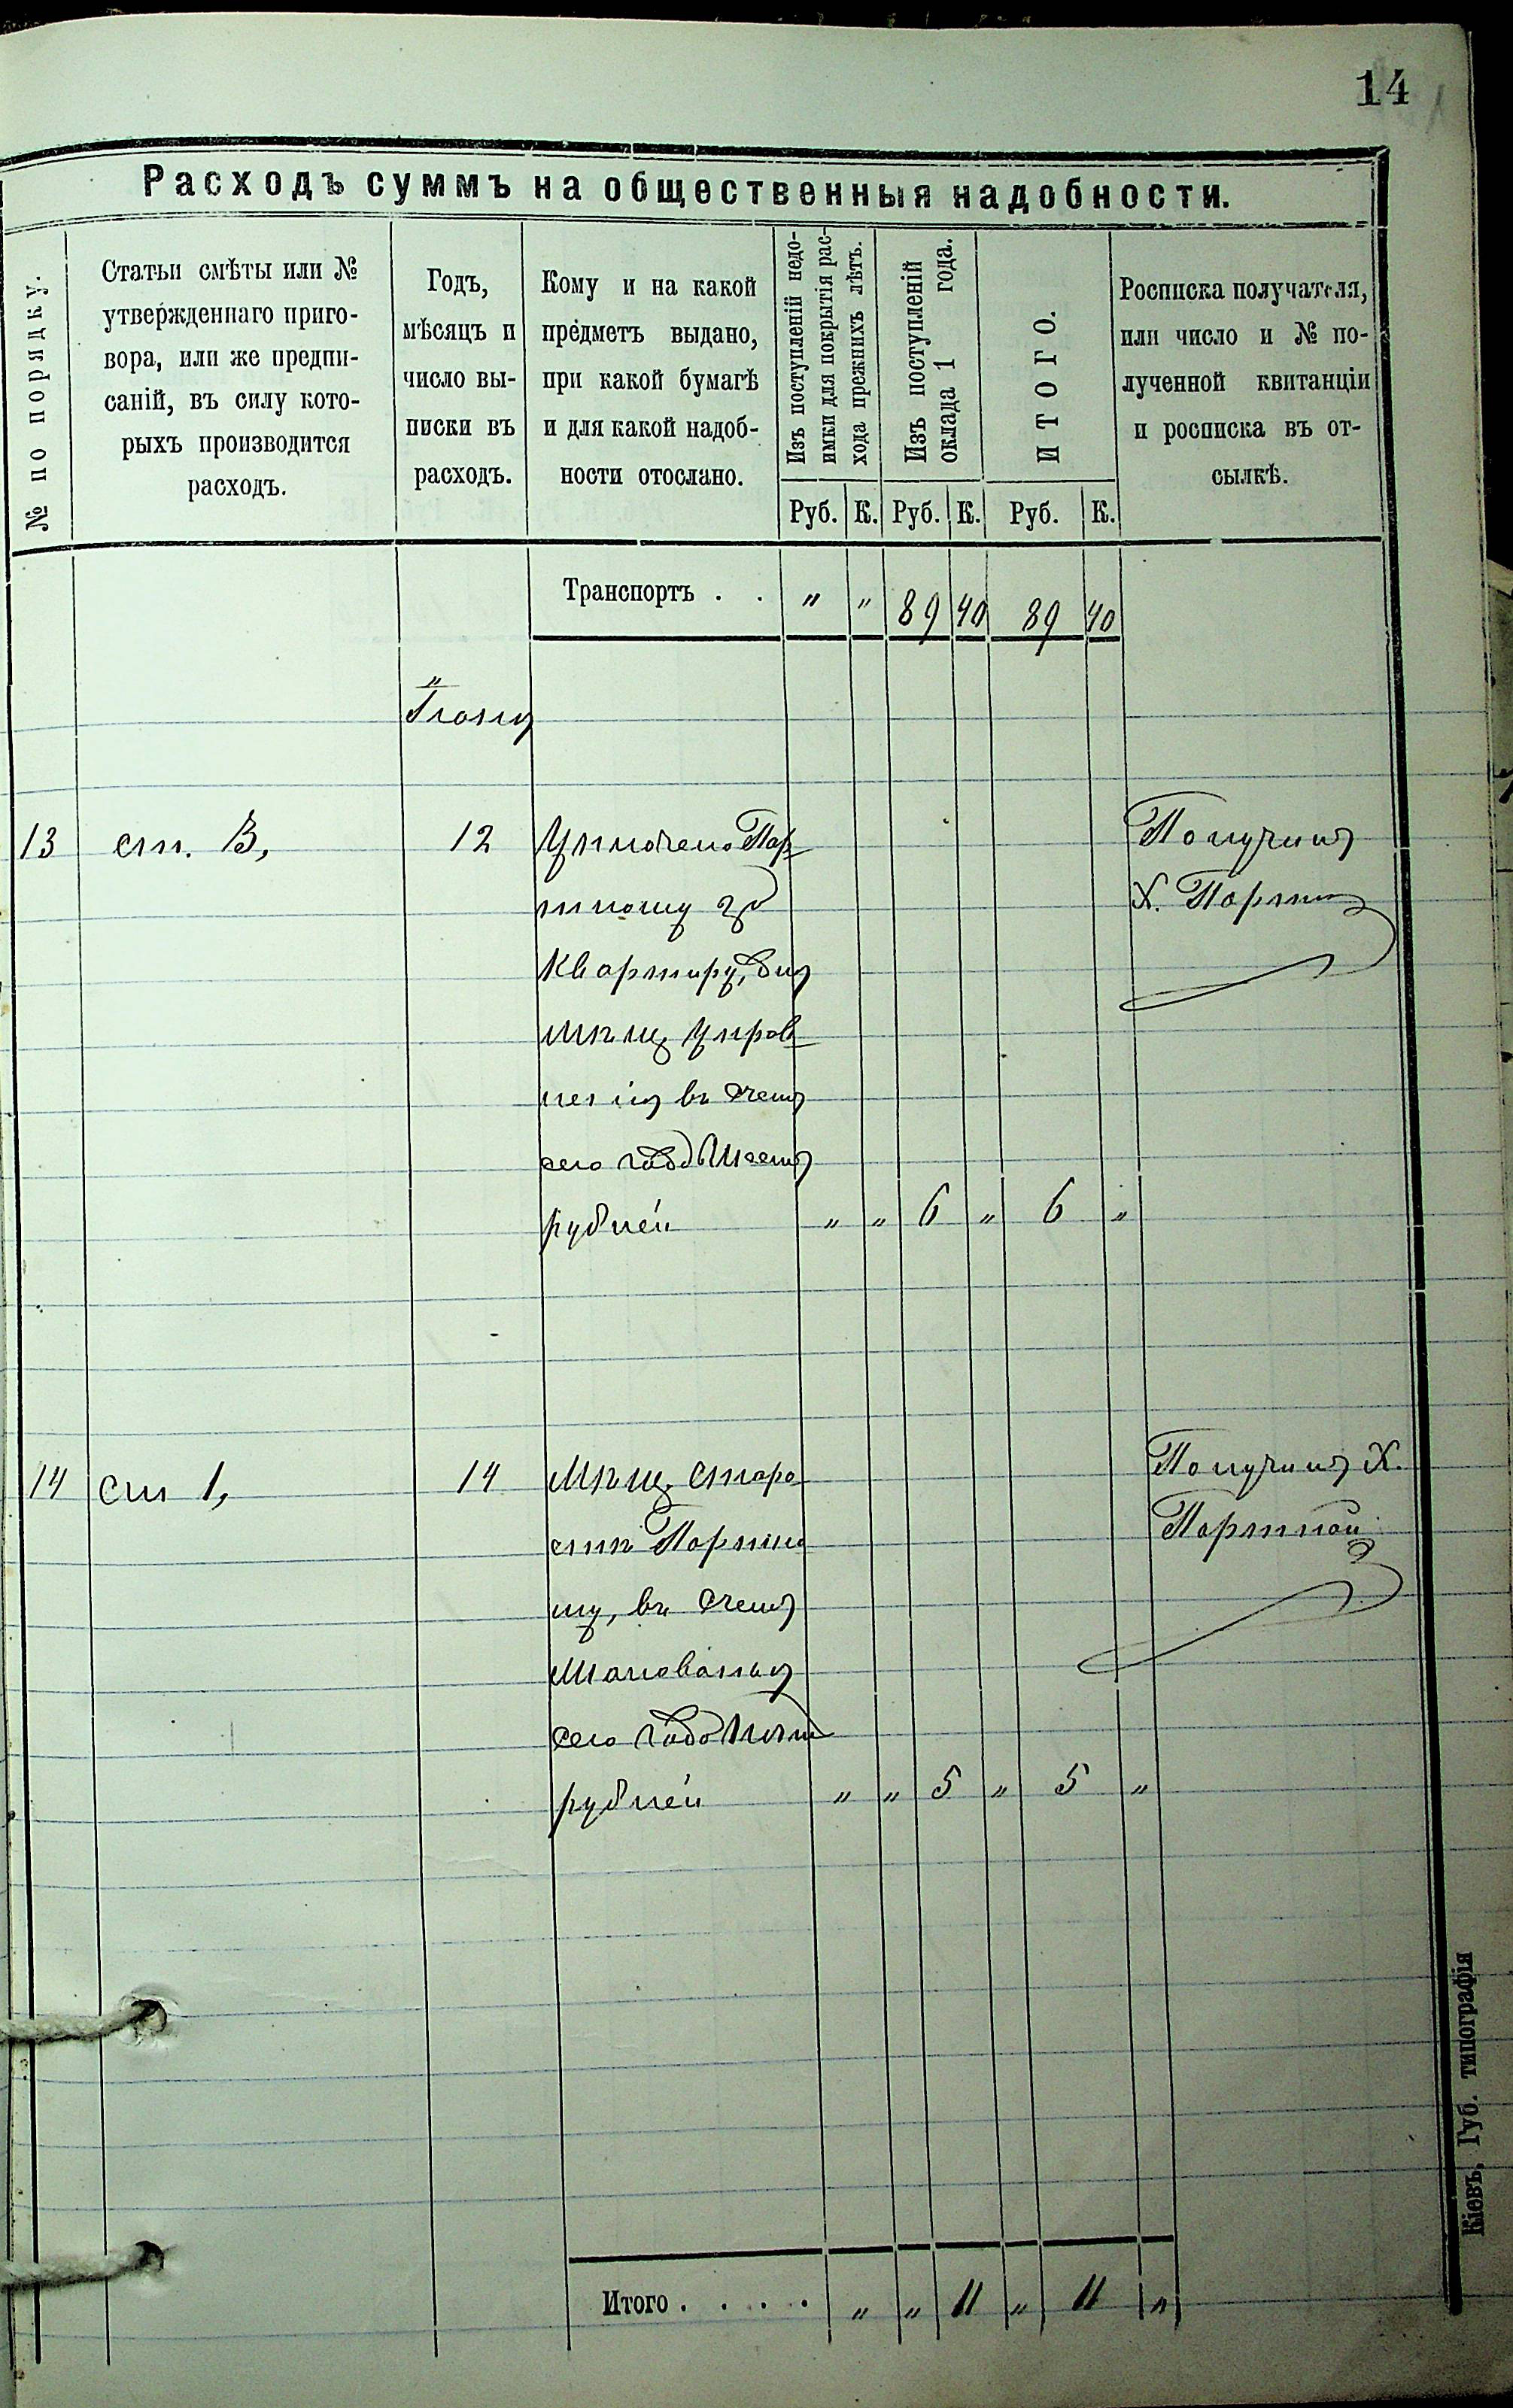 14
Расходъ суммъ на общественныя надобности.
№ по порядку.
Статьи смѣты или №
утвержденнаго приго-
вора, или же предпи-
саній, въ силу кото-
рыхъ производится
расходъ.
Годъ,
мѣсяцъ и
число вы-
писки въ
расходъ.
Кому и на какой
предметъ выдано,
при какой бумагѣ
и для какой надоб-
ности отослано.
Изъ поступленій недо-
имки для покрытія рас-
хода прежнихъ лѣтъ.
Изъ поступленій
оклада 1 года.
ИТОГО.
Росписка получателя,
или число и № по-
лученной квитанціи
и росписка въ от-
сылкѣ.
Руб. К. Руб. К. Руб. К.
Транспортъ . . " " 89 40 89 40
"
13 ст. В, 12 Уплочено Пор
тному за
квартиру, для
мѣщ. управ
ленія въ счетъ
сего года Шесть
рублей " " 6 " 6 "
Получилъ
Х. Портной
14 ст 1, 14 Мѣщ. старо
стѣ Портно
му, въ счетъ
жалованья
сего года Пять
рублей " " 5 " 5 "
Получилъ Х.
Портной
Итого . . . . " " 11 " 11 "
Кіевъ, Губ. типографія